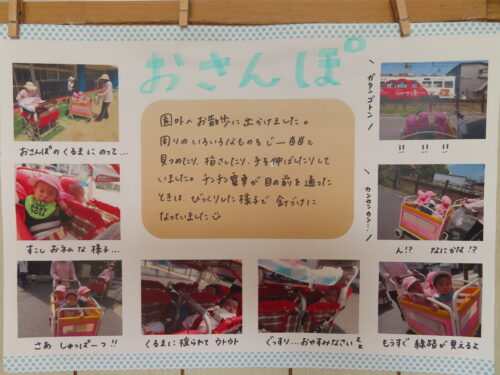 おさんぽ
園外へお散歩に出かけました。
周りのいろいろなものをじーっと
見つめたり、指さしたり、手を伸ばしたりして
いました。チンチン電車が目の前を通った
ときは、びっくりした様子で釘づけに
なっていました
おさんぽのくるまにのって…
すこしおネムな様子…
さぁ しゅっぱーつ!!
くるまに揺られてウトウト
ぐっすり…おやすみなさい
zz
ガタンゴトン
!! !! !!
カンカンカン…
ん!? なにかな!?
もうすぐ線路が見えるよ